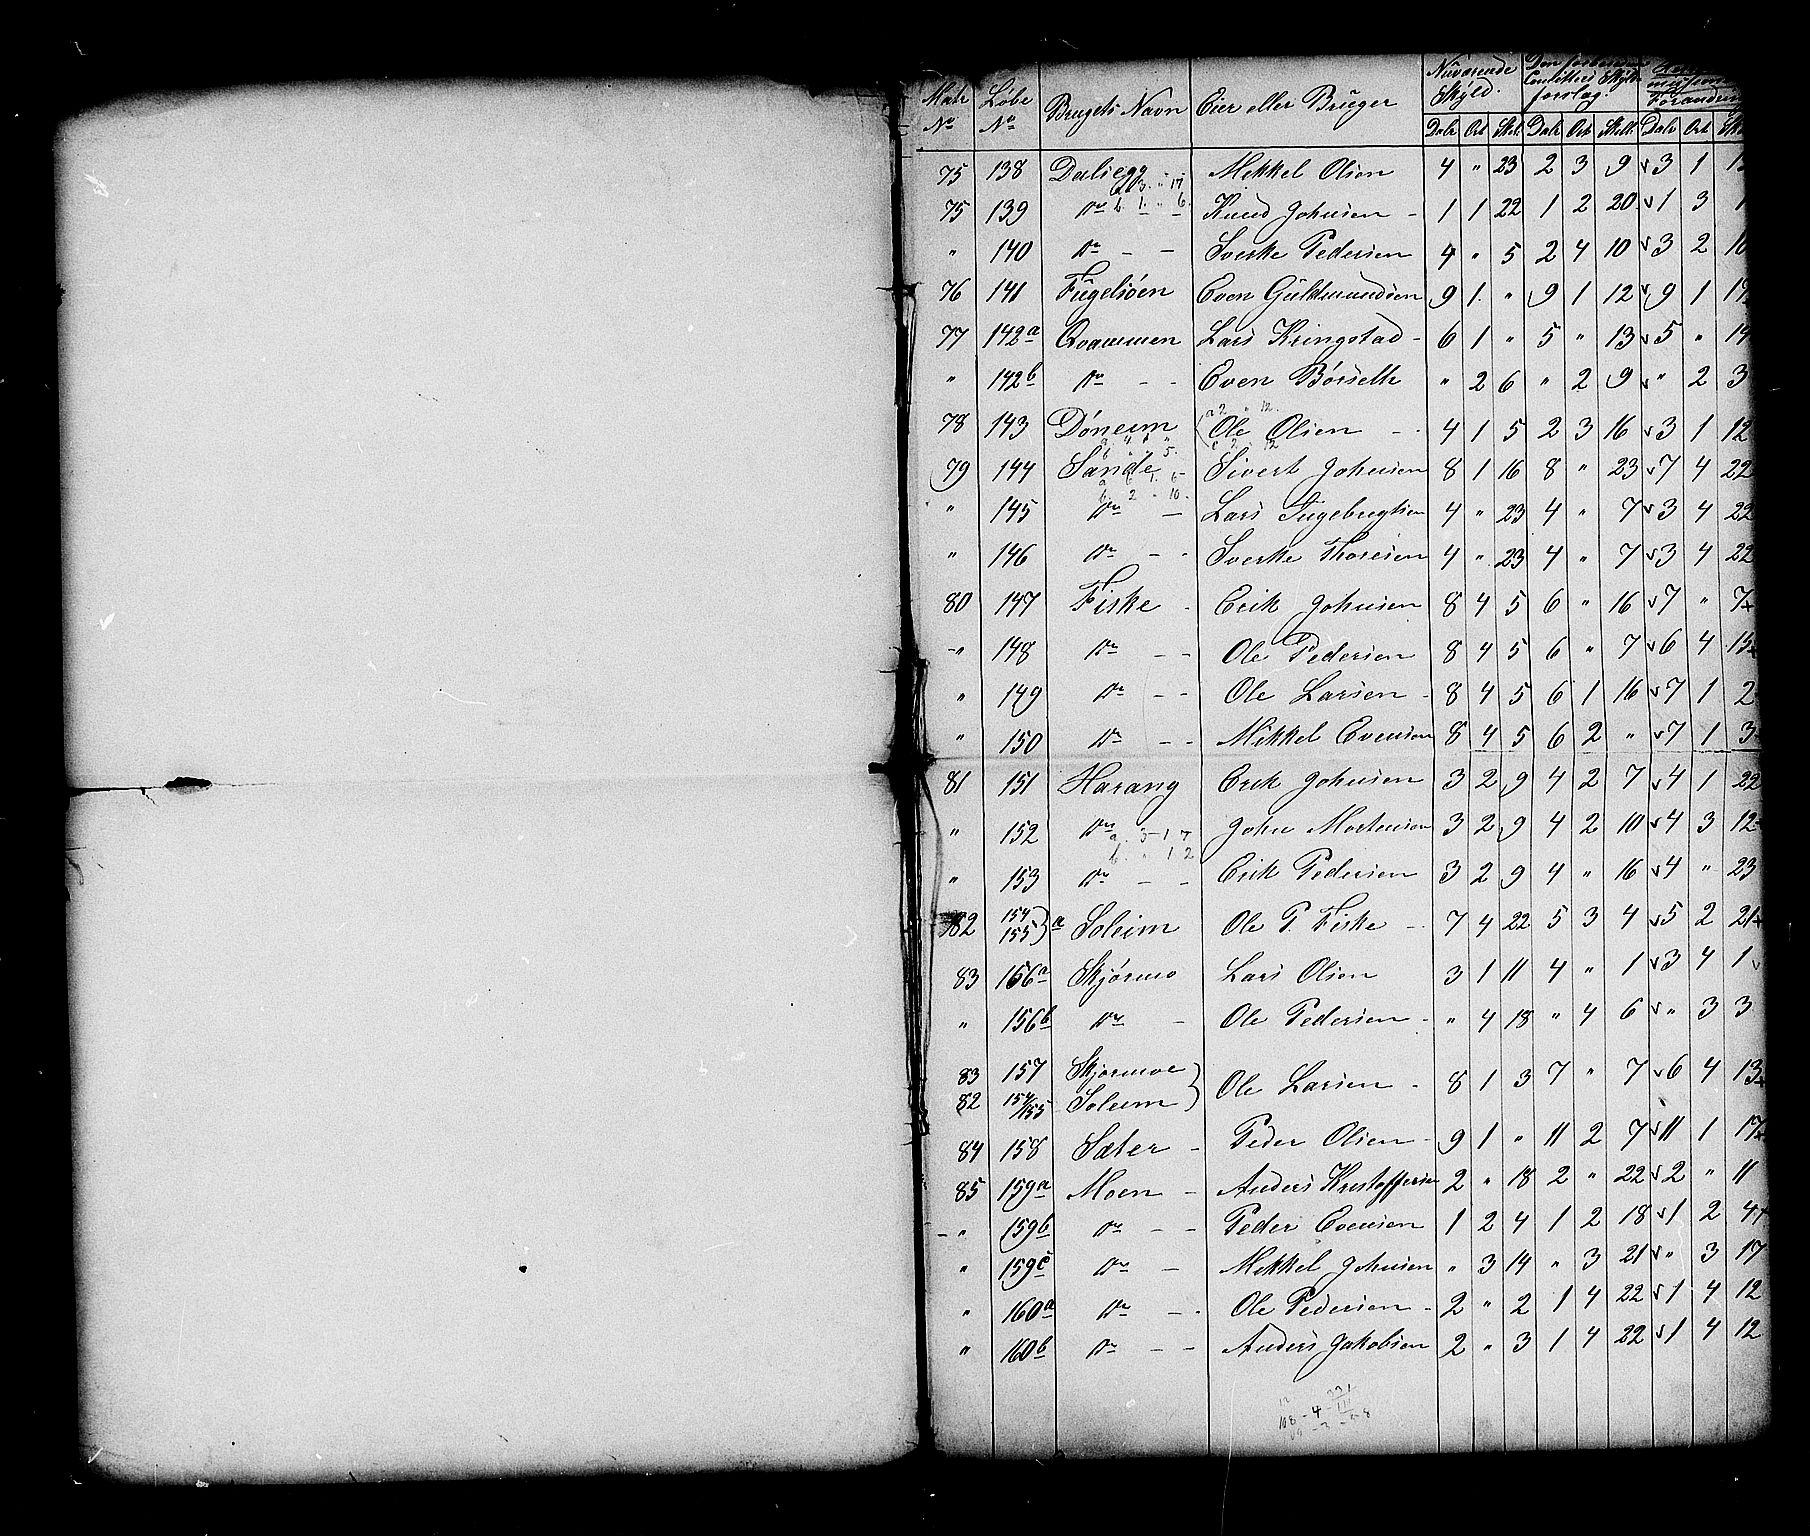 Matr Løbe Brugets Navn Eier eller Bruger Nuværende Skyld. Den forberedende Comittees Skyld forslag.
No No Dalr Ort Skil. Dalr Ort Skill. Dalr Ort
75 138 Dalsegg Mikkel Olsen 4 " 23 2 3 9 v 3 1
a. 3. " 17
75 139 Do b. 1. " 6. Knud Johnsen - 1 1 22 1 2 20 v 1 3
" 140 Do - - Sverke Pedersen 4 " 5 2 4 10 v 3 2 10
76 141 Fugelsöen Even Guldmundsen 9 1. " 9 1 12 v 9 1 19
77 142a Qvammen Lars Kringstad - 6 1 " 5 " 13 v 5 " 19
" 142b Do - - Even Børseth " 2 6 " 2 9 v " 2 3
a 2 " 12.
78 143 Döneim Ole Olsen - - 4 1 5 2 3 16 v 3 1 12
79 144 Sande Sivert Johnsen 8 1 16 8 " 23 v 7 4 22
b. 2 " 10.
" 145 Do - Lars Ingebregtsen 4 " 23 4 " 7 v 3 4 22
" 146 Do - - Sverke Thoresen 4 " 23 4 " 7 v 3 4 22
80 147 Fiske - Erik Johnsen 8 4 5 6 " 16 v 7 " 7+
-" 148 Do - - Ole Pedersen 8 4 5 6 " 7 v 6 4 15+
" 149 Do - - Ole Larsen - 8 4 5 6 1 16 v 7 1 2
" 150 Do - - Mikkel Evensen 8 4 5 6 2 " v 7 1 3
81 151 Harang Erik Johnsen 3 2 9 4 2 7 v 4 1 22
" 152 Do John Mortensen 3 2 9 4 2 10 v 4 3 12
a. 3 - 1 7
b. " 1 2
" 153 Do - - Erik Pedersen 3 2 9 4 " 16 v 4 " 23
82 154 155 } a Soleim Ole P. Fiske - 7 4 22 5 3 4 v 5 2 21+
83 156a Skjørmo Lars Olsen 3 1 11 4 " 1 v 3 4 1 v
" 156b Do - Ole Pedersen - " 4 18 " 4 6 v " 3 3
83 157 Skjørmoe } Ole Larsen - 8 1 3 7 " 7 v 6 4 13+
82 154/155 Soleim
84 158 Sæter - Peder Olsen - 9 1 " 11 2 7 v 11 1 17+
85 159a Moen - Anders Kristoffersen 2 " 18 2 " 22 v 2 " 11
- " 159b Do - - Peder Evensen 1 2 4 1 2 18 v 1 2 4+
" 159c Do - Mikkel Johnsen " 3 14 " 3 21 v " 3 17
" 160a Do - - Ole Pedersen - 2 " 2 1 4 22 v 1 4 12
" 160b Do - - Anders Jakobsen 2 " 3 1 4 22 v 1 4 12
108 - 4 -